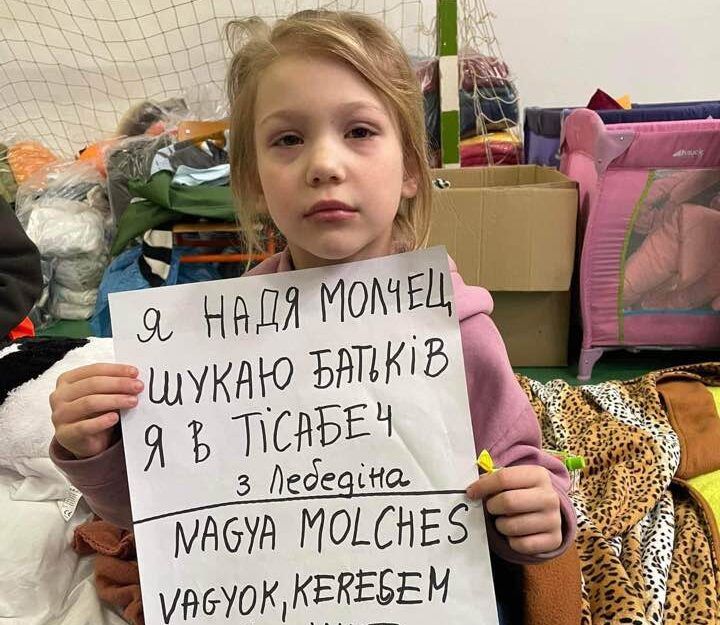 Я НАДЯ МОЛЧЕЦ
ШУКАЮ БАТЬКІВ
Я В ТІСАБЕЧ
З Лебедіна
NAGYA MOLCHES
VAGYOK, KERESEM
hauck